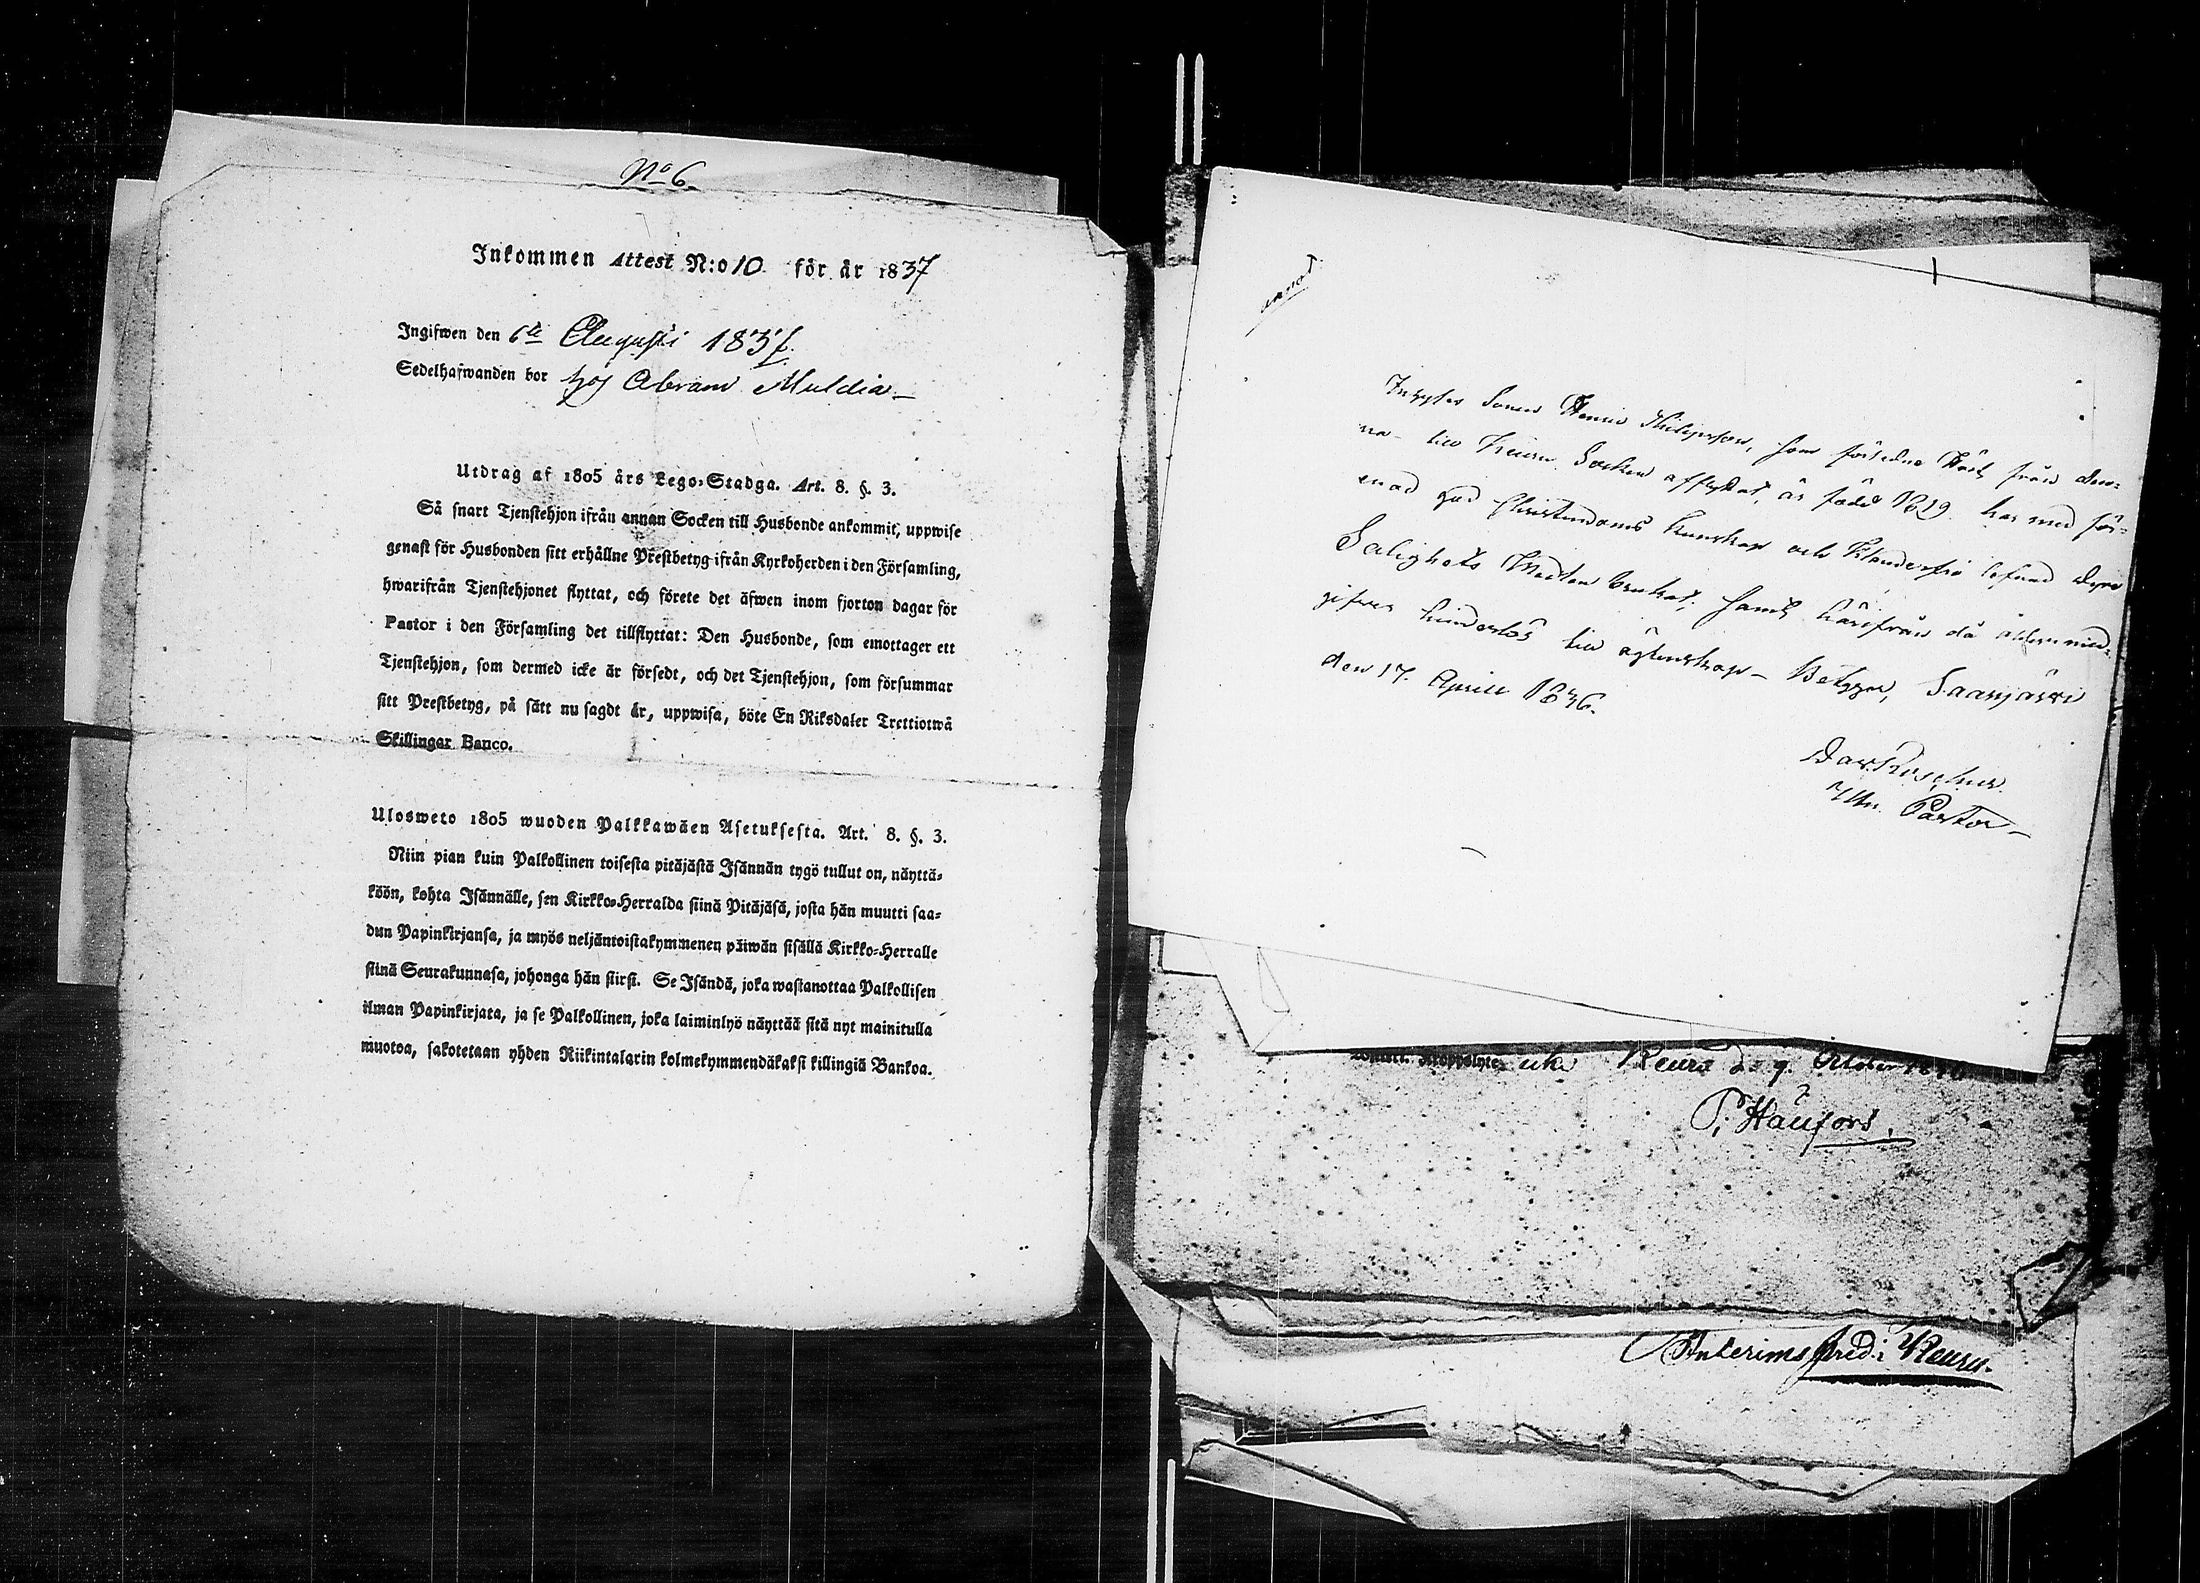 No 6.
Inkommen Attest N:o 10. för år 1837
Ingifwen den 6te Augusti 1837.
Sedelhafwanden bor hos Abram Muldia
Utdrag af 1805 års Lego-Stadga. Art. 8. §. 3.
Så snart Tjenstehjon ifrån annan Socken till Husbonde ankommit, uppwise
genast för Husbonden sitt erhållne Prestbetyg ifrån Kyrkoherden i den Församling,
hwarifrån Tjenstehjonet flyttat, och förete det äfwen inom fjorton dagar för
Pastor i den Församling det tillflyttat: Den Husbonde, som emottager ett
Tjenstehjon, som dermed icke är försedt, och det Tjenstehjon, som försummar
sitt Prestbetyg, på sätt nu sagdt är, uppwisa, böte En Riksdaler Trettiotwå
Skillingar Banco.
Ulosweto 1805 wuoden Palkkawäen Asetuksesta. Art. 8. §. 3.
Niin pian kuin Palkollinen toisesta pitäjästä Isännän tygö tullut on, näyttä-
köön, kohta Isännälle, sen Kirkko-Herralda siinä Pitäjäsä, josta hän muutti saa-
dun Papinkirjansa, ja myös neljäntoistakymmenen päiwän sisällä Kirkko-Herralle
siinä Seurakunnasa, johonga hän siirsi. Se Isändä, joka wastanottaa Palkollisen
ilman Papinkirjata, ja se Palkollinen, joka laiminlyö näyttää sitä nyt mainitulla
muotoa, sakotetaan yhden Riikintalarin kolmekymmendäkaksi killingiä Bankoa.
annot
Inhyses Sonen Henric Philipsson, som förledne Höst från den-
na till Keuru Socken afflyttat, är född 1819. har med för-
enad god Christendoms Kunskap och klanderfri lefnad
Salighets Medlen brukat; samt härifrån då
gifves hinderlös till ägtenskap Betygar, Saarijärvi
den 17. April 1836.
Dav. Roschier
Pastor
uti Keuru d. 9. October
P. Häufors.
Interims Pred. i Keuru.